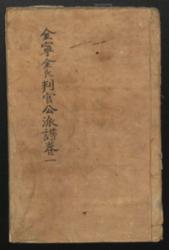 金寧金氏判官公派譜卷一